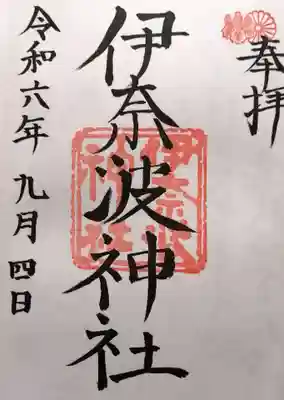 奉拝
伊奈波神社
伊奈波
神社
令和六年九月四日